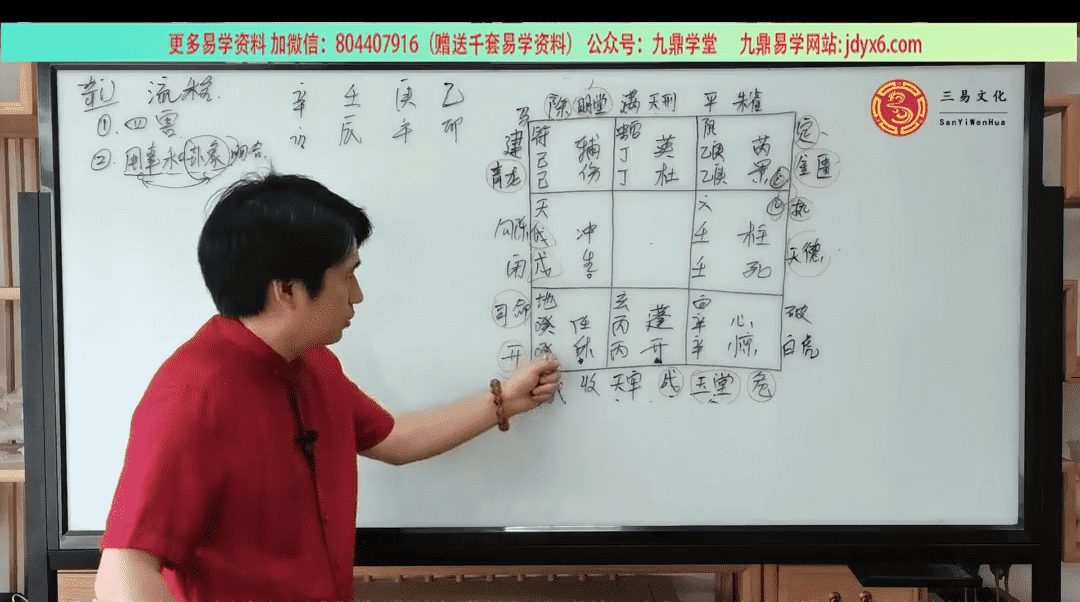 更多易学资料 加微信：804407916（赠送千套易学资料） 公众号：九鼎学堂 九鼎易学网站: jdyx6.com
三易文化
SanYiWenHua
流
辛 壬 庚 乙
辰 午 卯
① 四害
②
除 明堂 满 天刑 平 朱雀
建 符 己 辅 丁 英 乙庚 芮 定
青龙 己 伤 丁 杜 乙庚 景 金匮
天 六 执
勾陈 戊 冲 壬 柱
闭 戊 生 壬 死 天德
司命 地 癸 任 玄 丙 蓬 辛 心 破
开 休 丙 开 辛 惊 白虎
收 天牢 成 玉堂 危